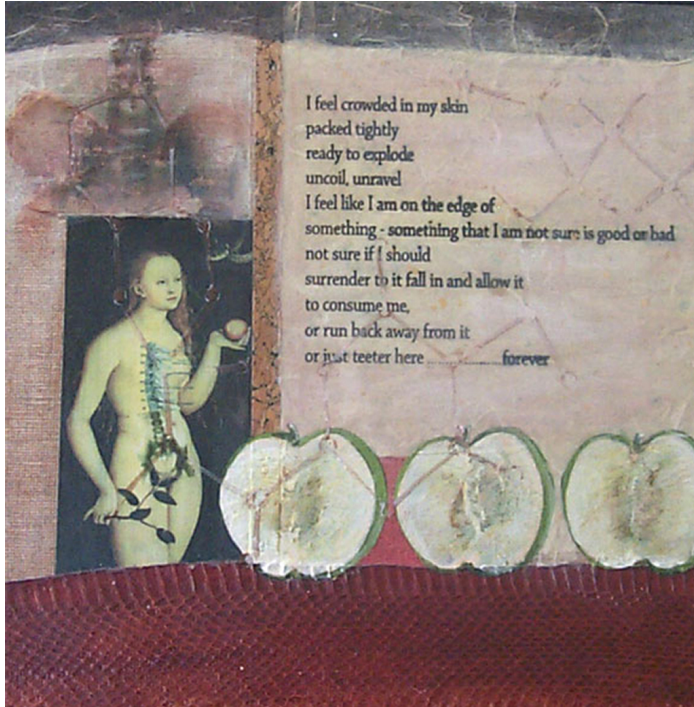 I feel crowded in my skin
packed tightly
ready to explode
uncoil, unravel
I feel like I am on the edge of
something - something that I am not sure is good or bad
not sure if I should
surrender to it fall in and allow it
to consume me,
or run back away from it
or just teeter here ..................forever